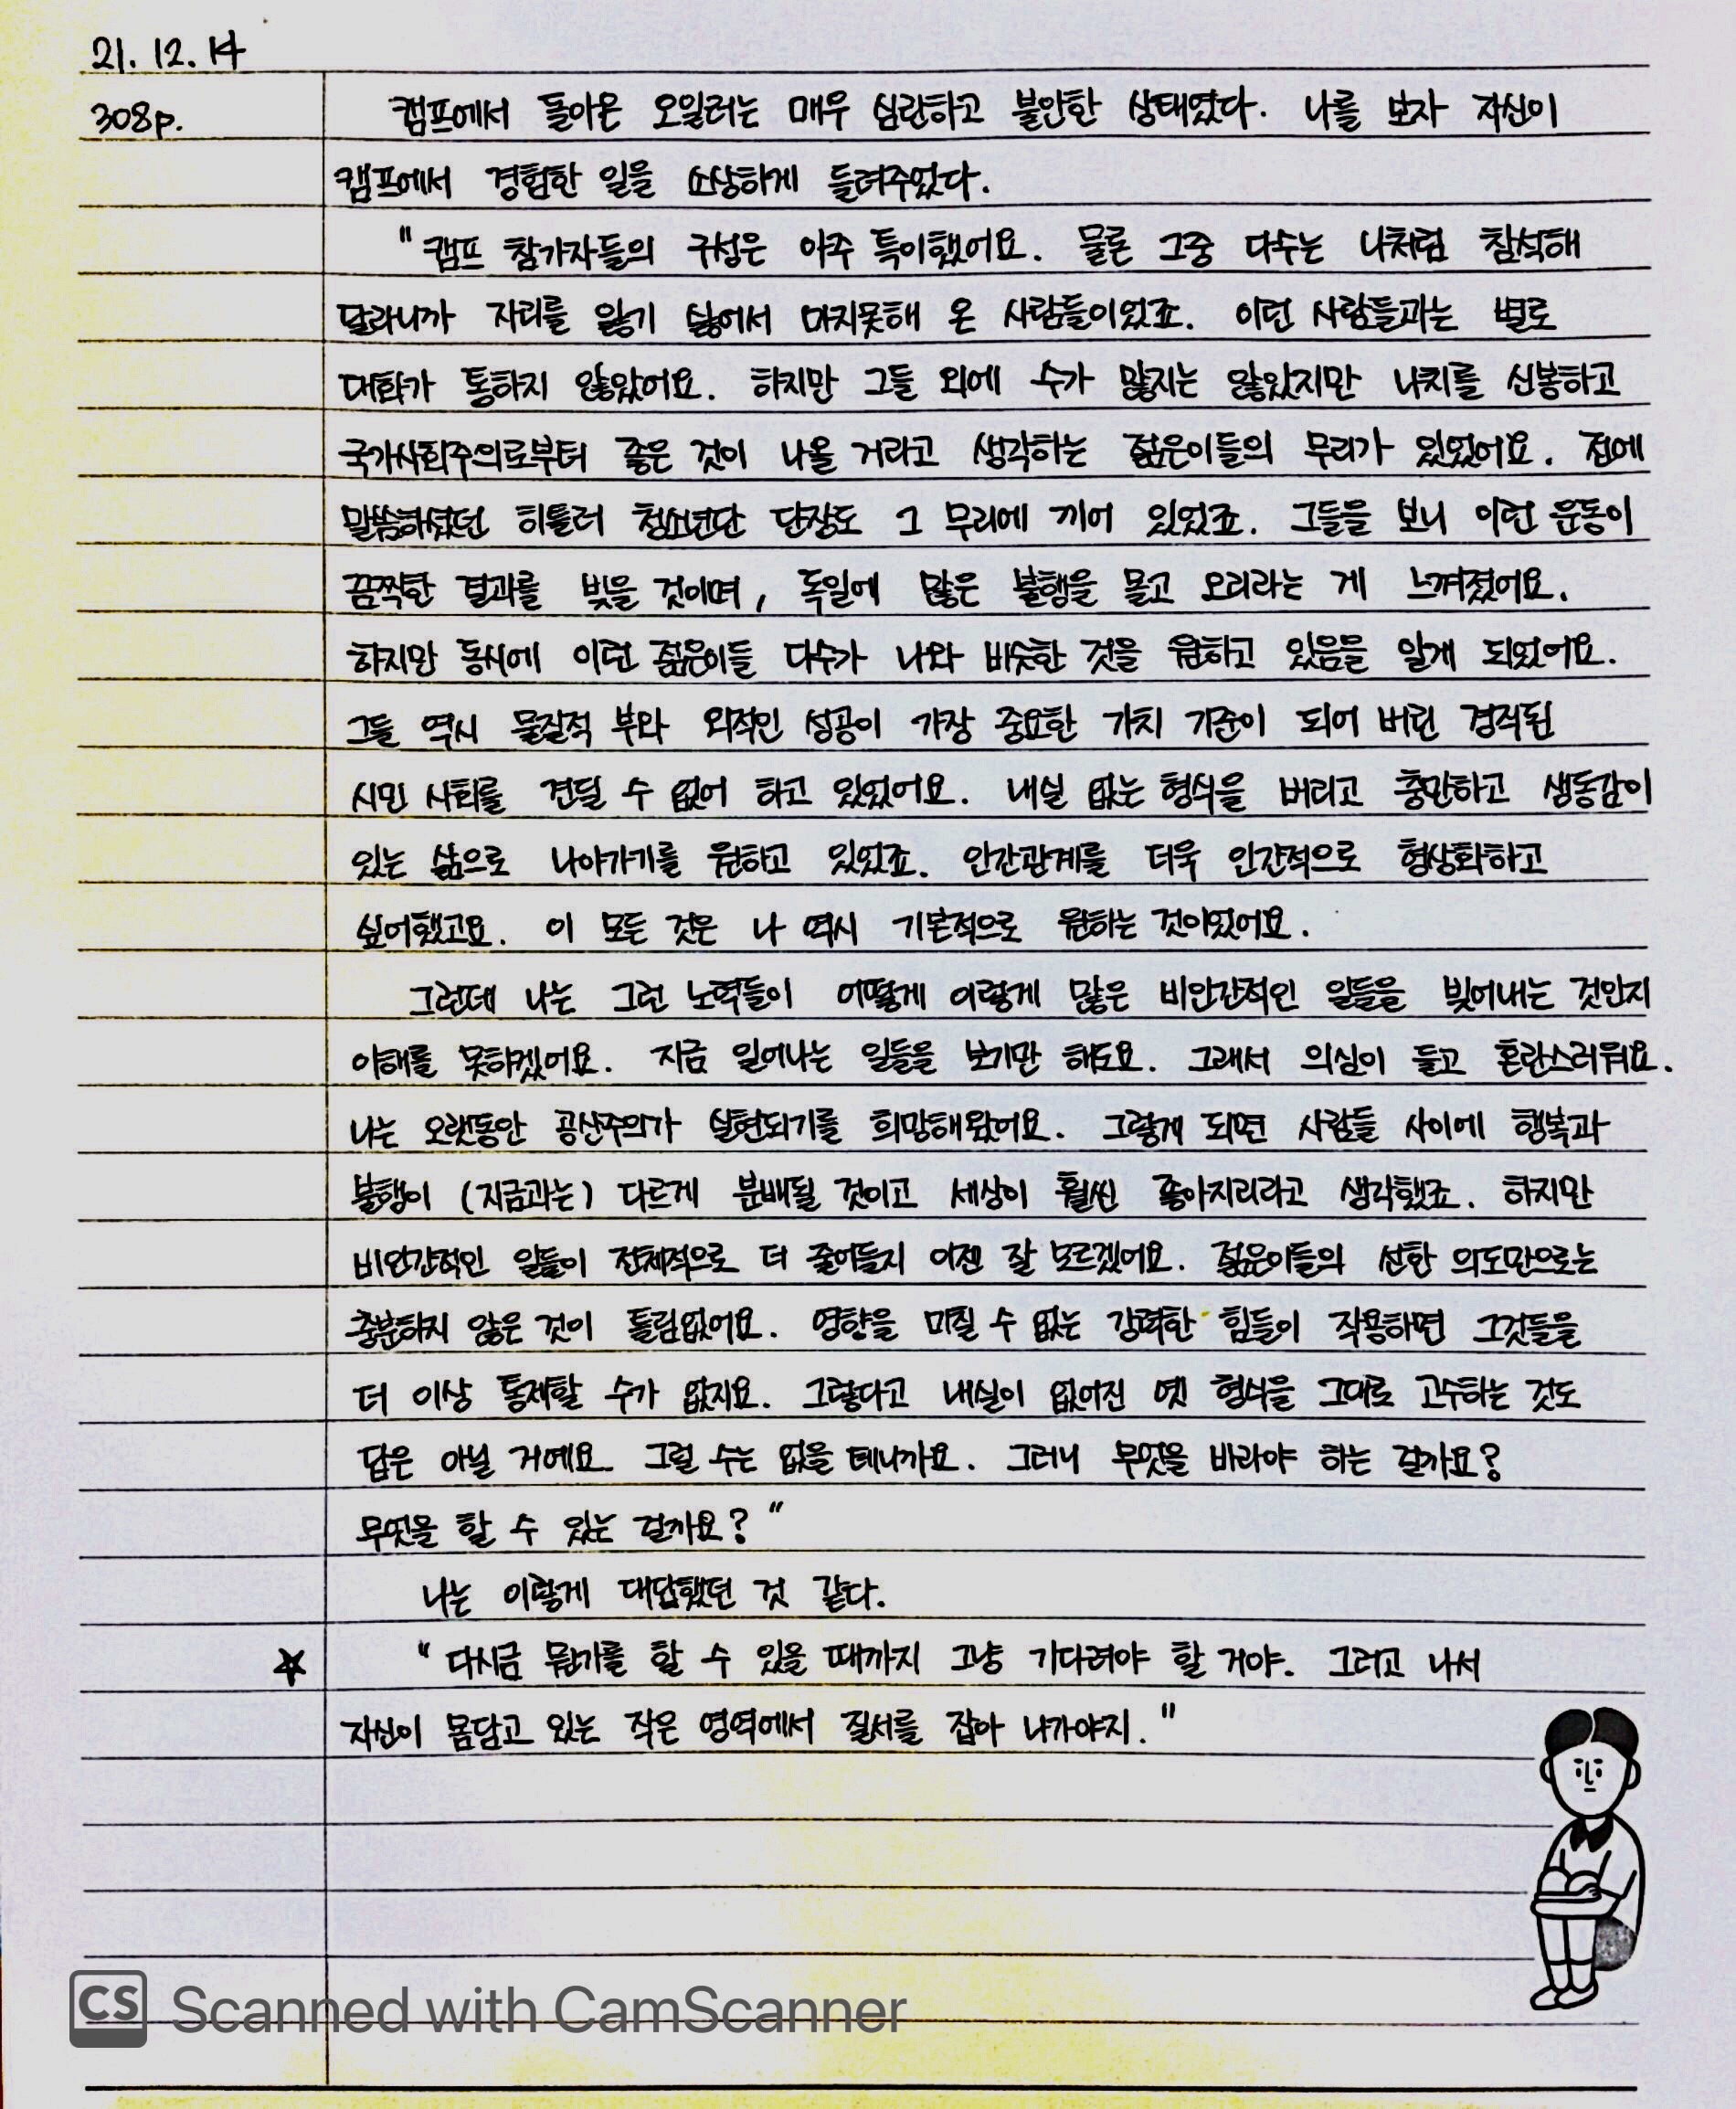 21. 12. 14
308p. 캠프에서 돌아온 오일러는 매우 심란하고 불안한 상태였다. 나를 보자 자신이
캠프에서 경험한 일을 소상하게 들려주었다.
"캠프 참가자들의 구성은 아주 특이했어요. 물론 그중 다수는 나처럼 참석해
달라니까 자리를 잃기 싫어서 마지못해 온 사람들이었죠. 이런 사람들과는 별로
대화가 통하지 않았어요. 하지만 그들 외에 수가 많지는 않았지만 나치를 신봉하고
국가사회주의로부터 좋은 것이 나올 거라고 생각하는 젊은이들의 무리가 있었어요. 전에
말씀하셨던 히틀러 청소년단 단장도 그 무리에 끼어 있었죠. 그들을 보니 이런 운동이
끔찍한 결과를 빚을 것이며, 독일에 많은 불행을 몰고 오리라는 게 느껴졌어요.
하지만 동시에 이런 젊은이들 다수가 나와 비슷한 것을 원하고 있음을 알게 되었어요.
그들 역시 물질적 부와 외적인 성공이 가장 중요한 가치 기준이 되어 버린 경직된
시민 사회를 견딜 수 없어 하고 있었어요. 내실 없는 형식을 버리고 충만하고 생동감이
있는 삶으로 나아가기를 원하고 있었죠. 인간관계를 더욱 인간적으로 형상화하고
싶어했고요. 이 모든 것은 나 역시 기본적으로 원하는 것이었어요.
그런데 나는 그런 노력들이 어떻게 이렇게 많은 비인간적인 일들을 빚어내는 것인지
이해를 못하겠어요. 지금 일어나는 일들을 보기만 해도요. 그래서 의심이 들고 혼란스러워요.
나는 오랫동안 공산주의가 실현되기를 희망해왔어요. 그렇게 되면 사람들 사이에 행복과
불행이 (지금과는) 다르게 분배될 것이고 세상이 훨씬 좋아지리라고 생각했죠. 하지만
비인간적인 일들이 전체적으로 더 줄어들지 이젠 잘 모르겠어요. 젊은이들의 선한 의도만으로는
충분하지 않은 것이 틀림없어요. 영향을 미칠 수 없는 강력한 힘들이 작용하면 그것들을
더 이상 통제할 수가 없지요. 그렇다고 내실이 없어진 옛 형식을 그대로 고수하는 것도
답은 아닐 거예요. 그럴 수는 없을 테니까요. 그러니 무엇을 바라야 하는 걸까요?
무엇을 할 수 있는 걸까요?"
나는 이렇게 대답했던 것 같다.
☆ "다시금 뭔가를 할 수 있을 때까지 그냥 기다려야 할 거야. 그러고 나서
자신이 몸담고 있는 작은 영역에서 질서를 잡아 나가야지."
CS Scanned with CamScanner